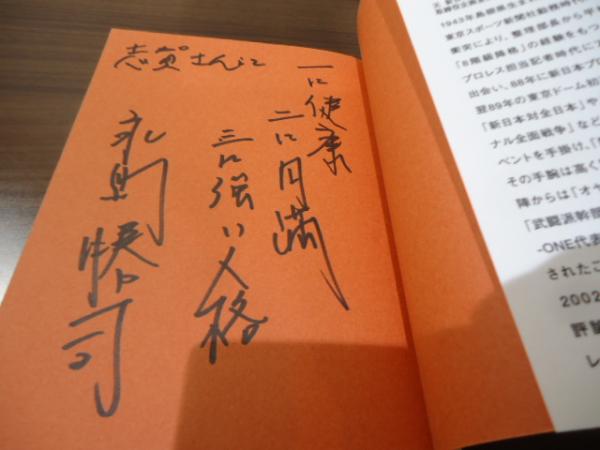 志賀さんに
一に健康
二に円満
三に強い人格
永島勝司
1943年島根県生
東京スポーツ新聞社勤務時代
衝突により、整理部長から平
「8階級降格」の経験をもつ
プロレス担当記者時代にア
出会い、88年に新日本プロ
翌89年の東京ドーム初
「新日本対全日本」や
ナル全面戦争」など
ベントを手掛け、「
その手腕は高く
陣からは「オヤ
「武闘派幹部
-ONE代表
されたこ
2002
評論
レ